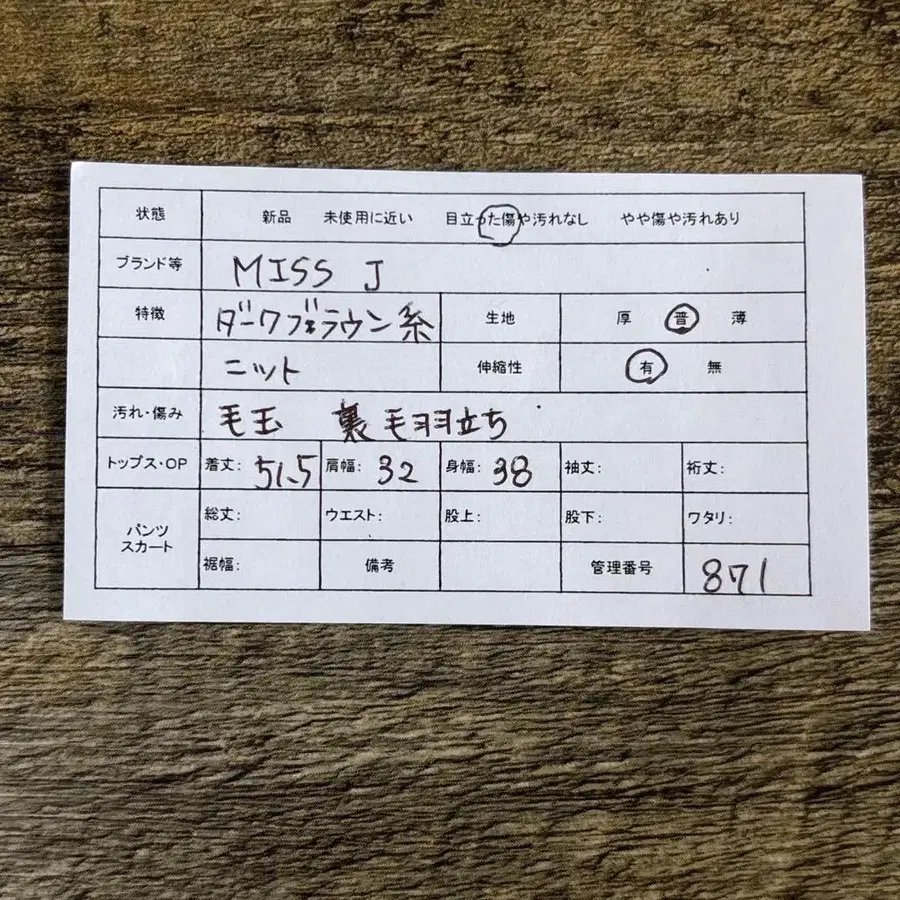 状態 新品 未使用に近い 目立った傷や汚れなし やや傷や汚れあり
ブランド等 MISS J
特徴 ダークブラウン系 生地 厚 普 薄
ニット 伸縮性 有 無
汚れ・傷み 毛玉 裏毛羽立ち
トップス・OP 着丈: 51.5 肩幅: 32 身幅: 38 袖丈: 裄丈:
パンツ スカート 総丈: ウエスト: 股上: 股下: ワタリ:
裾幅: 備考 管理番号 871